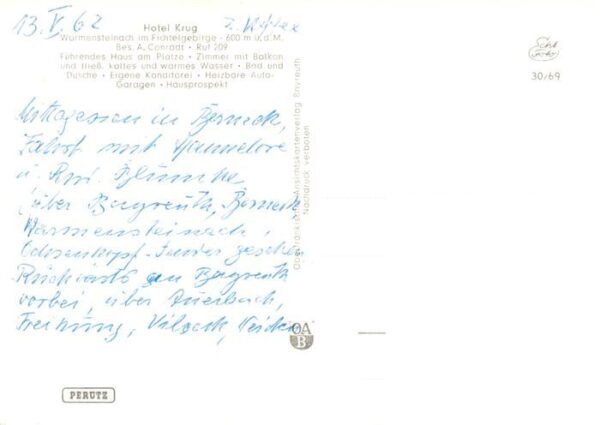 13. V. 62
Hotel Krug
Warmensteinach im Fichtelgebirge - 600 m ü.d.M.
Bes. A. Conradt • Ruf 209
Führendes Haus am Platze • Zimmer mit Balkon
und fließ. kaltes und warmes Wasser • Bad und
Dusche • Eigene Konditorei • Heizbare Auto-
Garagen • Hausprospekt
Mittagessen in Berneck,
Fahrt mit Hannelore
u. Blümke
über Bayreuth, Berneck,
Warmensteinach,
Ochsenkopf
Rückwärts an Bayreuth
vorbei, über Auerbach,
Freihung, Vilseck,
Oberfränkische Ansichtskartenverlag Bayreuth
Nachdruck verboten
Echt
Foto
30/69
OA
B
PERUTZ